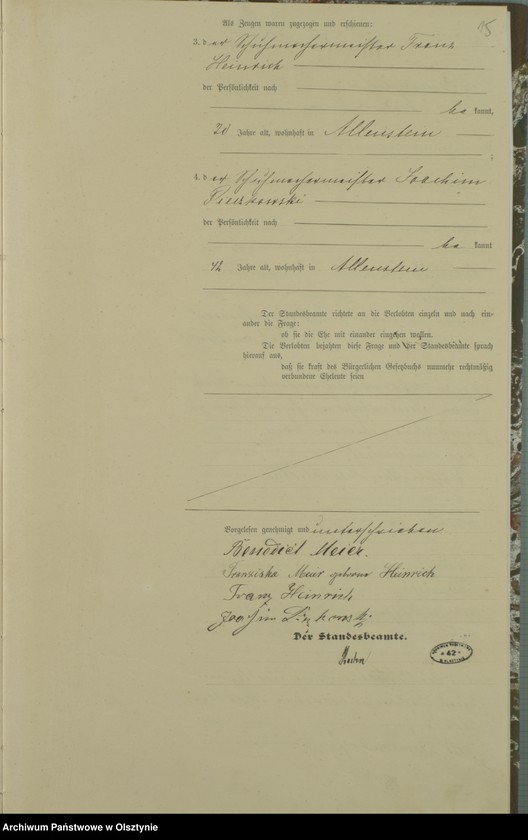 15
Als Zeugen waren zugezogen und erschienen:
3. der Schuhmachermeister Franz
Heinrich
der Persönlichkeit nach
be kannt,
Jahre alt, wohnhaft in Allenstein
;
4. der Schuhmachermeister Joachim
der Persönlichkeit nach
be kannt
42 Jahre alt, wohnhaft in Allenstein
Der Standesbeamte richtete an die Verlobten einzeln und nach ein-
ander die Frage:
ob sie die Ehe mit einander eingehen wollen.
Die Verlobten bejahten diese Frage und der Standesbeamte sprach
hierauf aus,
daß sie kraft des Bürgerlichen Gesetzbuchs nunmehr rechtmäßig
verbundene Eheleute seien
Vorgelesen genehmigt und unterschrieben
Benedict Meier.
Franziska Meier geborene Heinrich
Franz Heinrich
Der Standesbeamte.
42
Archiwum Państwowe w Olsztynie